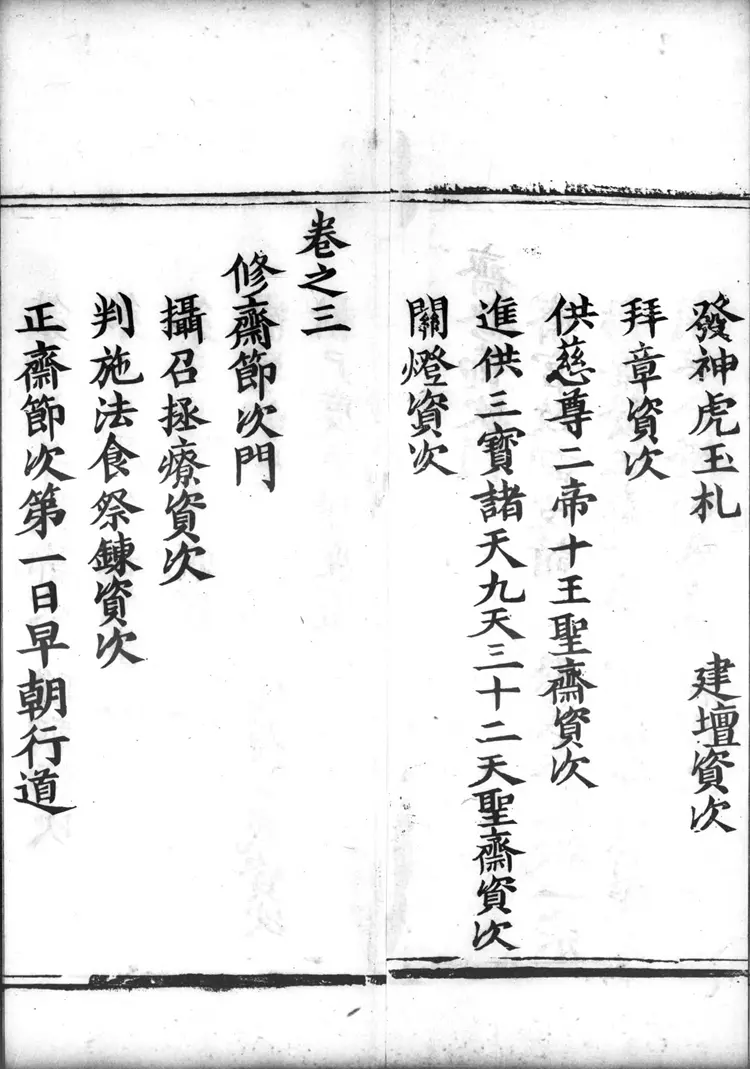 發神虎玉札　建壇資次
拜章資次
供慈尊二帝十王聖齋資次
進供三寶諸天九天三十二天聖齋資次
關燈資次
卷之三
修齋節次門
攝召拯療資次
判施法食祭鍊資次
正齋節次第一日早朝行道